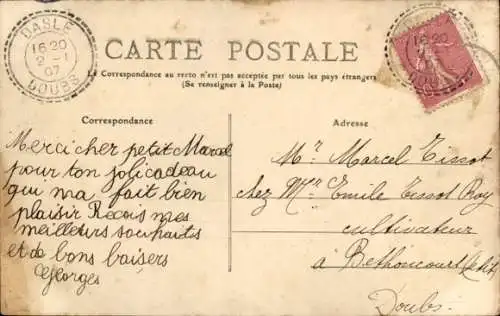 DASLE
16 20
2 - 1
07
DOUBS
CARTE POSTALE
La Correspondance au recto n'est pas acceptée par tous les pays étrangers
(Se renseigner à la Poste)
Correspondance
Merci cher petit Marcel
pour ton joli cadeau
qui ma fait bien
plaisir Recois mes
meilleurs souhaits
et de bons baisers
Georges
Adresse
Mr. Marcel Tissot
chez Mr. Emile Tissot Roy
cultivateur
à Bethoncourt
Doubs.
16 20